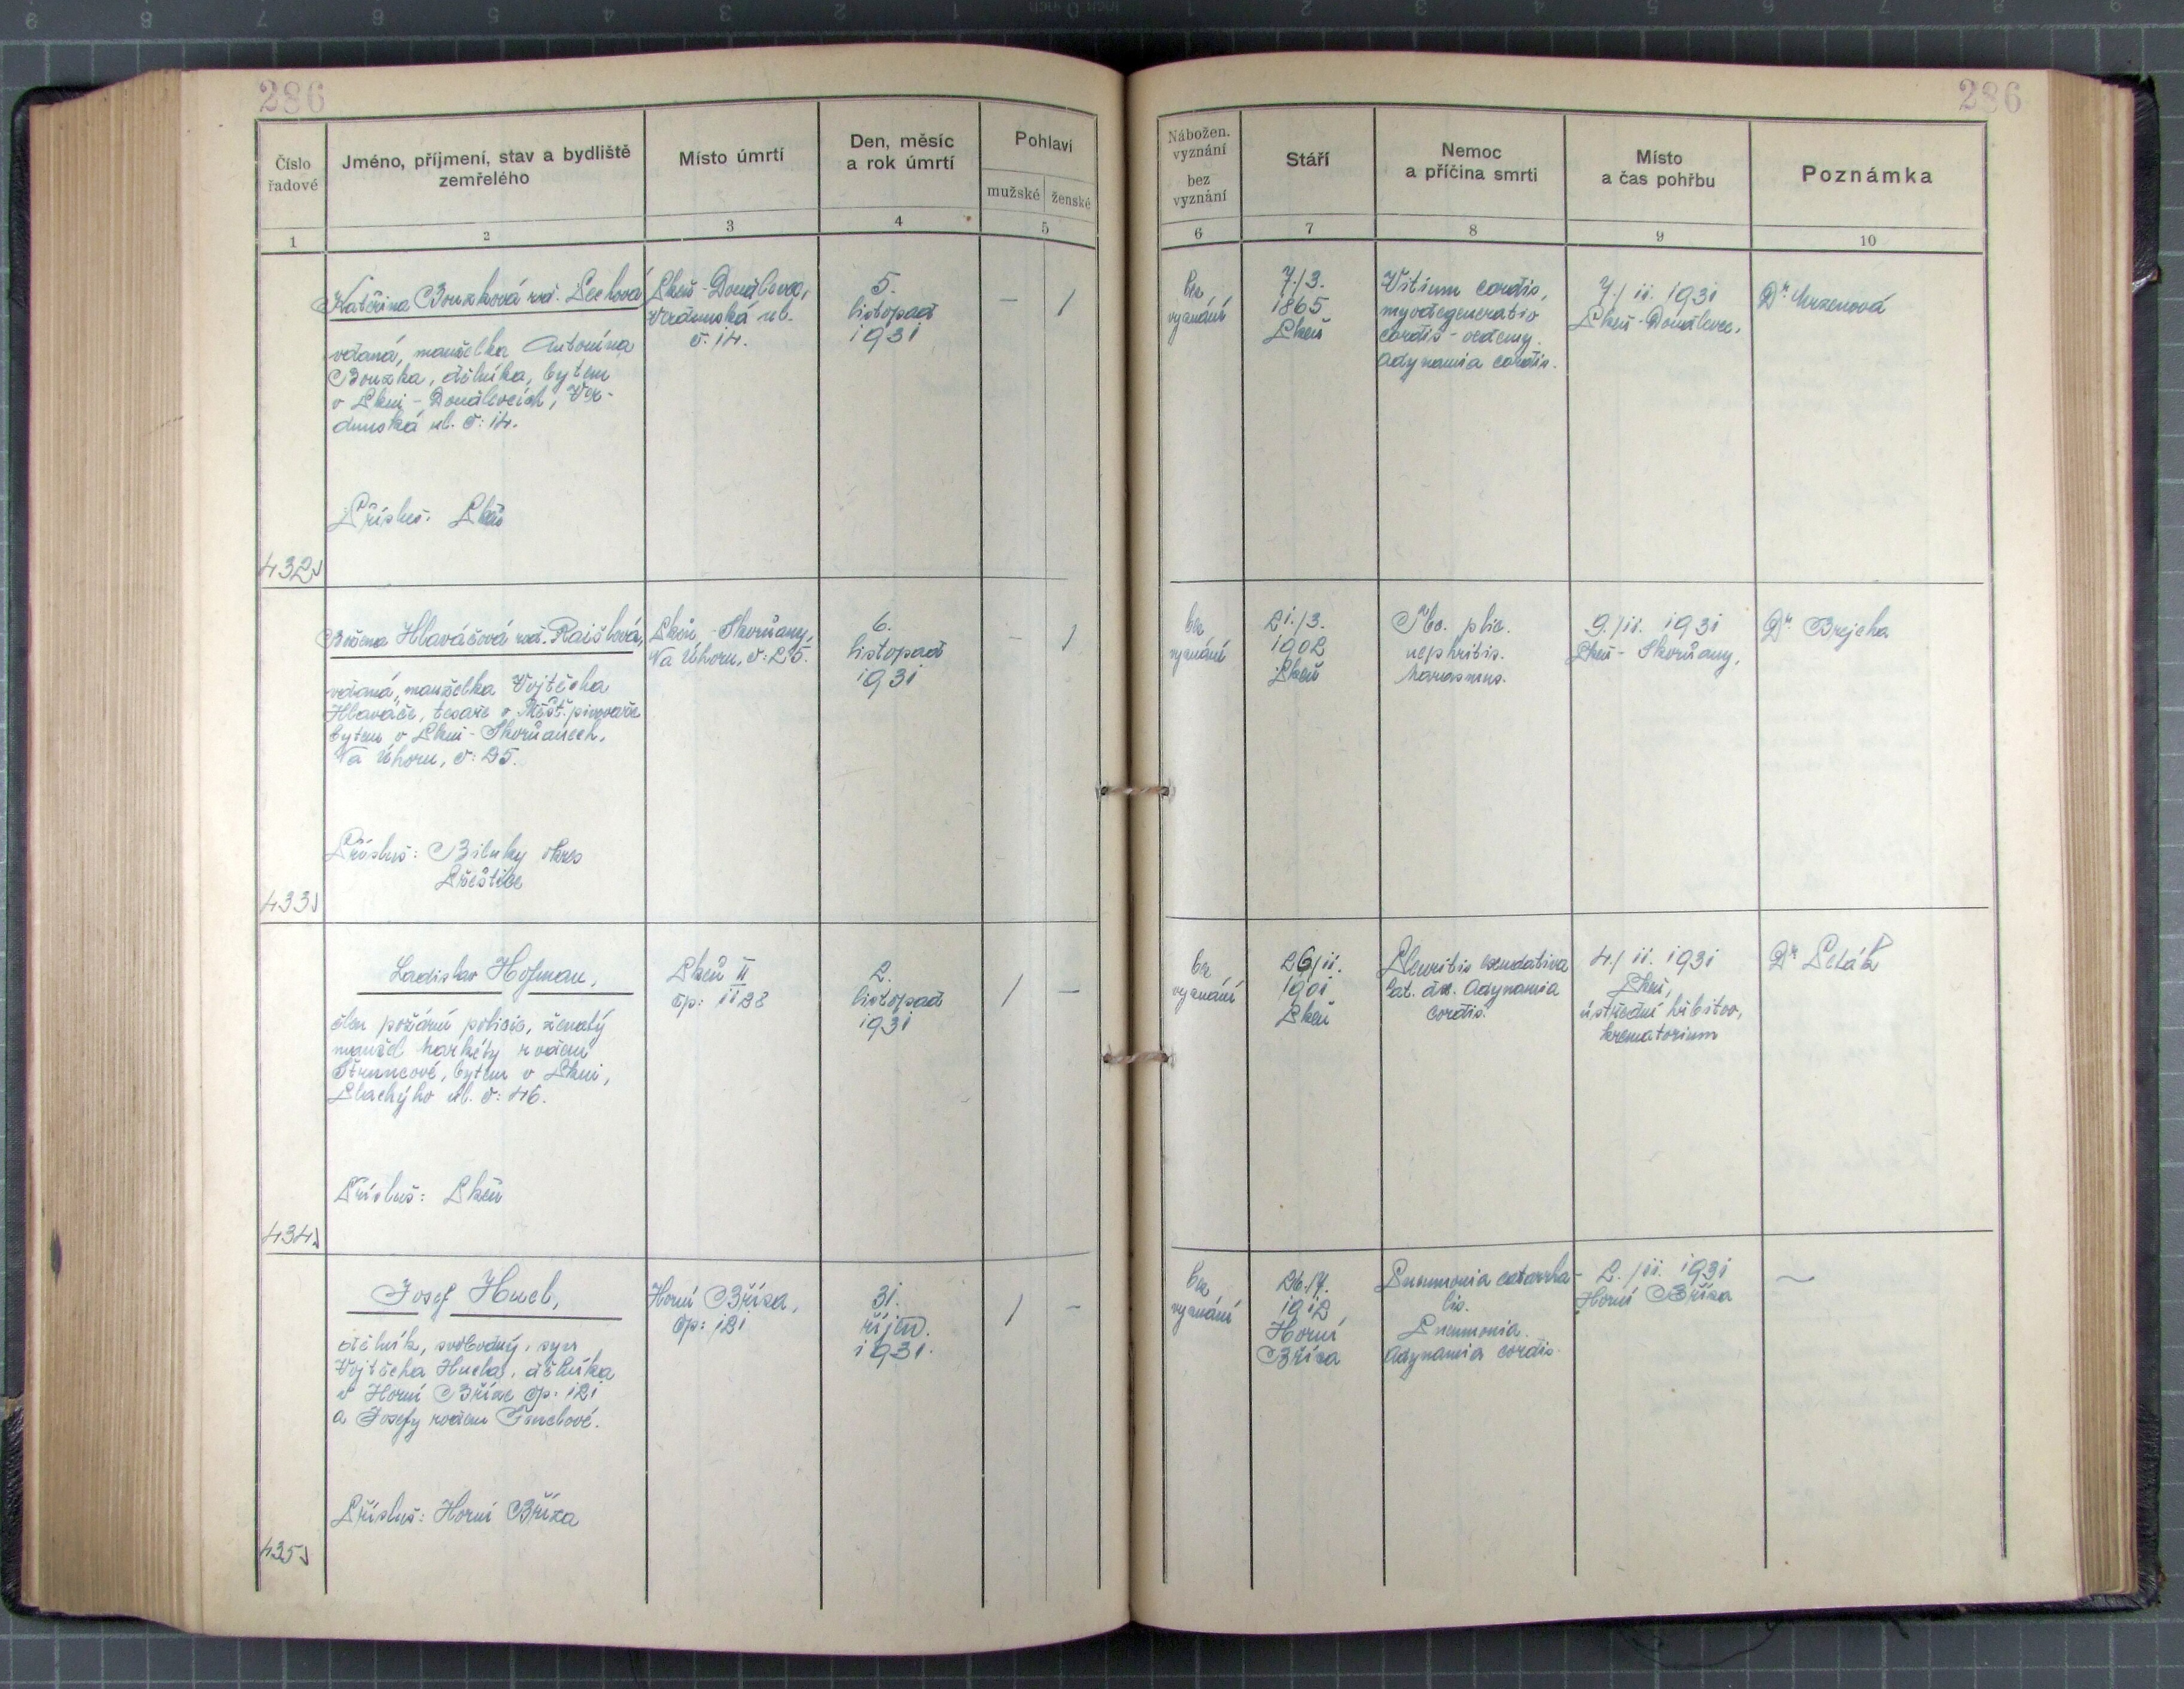 286
286
Číslo
řadové
Jméno, příjmení, stav a bydliště
zemřelého
Místo úmrtí
Den, měsíc
a rok úmrtí
Pohlaví
mužské
ženské
Nábožen.
vyznání
bez
vyznání
Stáří
Nemoc
a příčina smrti
Místo
a čas pohřbu
Poznámka
1
2
3
4
5
6
7
8
9
10
432
Kateřina Bouzková roz. Pechová
vdaná, manželka Antonína
Bouzka, dělníka, bytem
v Plzni - Doudlevcích, Ver-
dunská ul. č: 14.
Přísluš: Plzeň
Plzeň - Doudlevce,
Verdunská ul.
č. 14.
5.
listopad
1931
—
1
bez
vyznání
7./3.
1865
Plzeň
Vitium cordis,
myodegeneratio
cordis - oedemy.
adynamia cordis.
7./11. 1931
Plzeň - Doudlevce.
Dr.
433
Božena Hlaváčová roz. Raišlová,
vdaná, manželka Vojtěcha
Hlaváče, tesaře v Měšť. pivovaře
bytem v Plzni - Skvrňanech,
Na Úhoru, č: 25.
Přísluš: Biluky okres
Přeštice
Plzeň - Skvrňany,
Na Úhoru, č: 25.
6.
listopad
1931
—
1
bez
vyznání
21./3.
1902
Plzeň
Tbc. plic.
nephritis.
Marasmus.
9./11. 1931
Plzeň - Skvrňany,
Dr. Brejcha
434
Ladislav Hofman,
člen požární policie, ženatý
manžel Markéty rozen
Štruncové, bytem v Plzni,
Plachýho ul. č: 46.
Přísluš: Plzeň
Plzeň II
čp: 1128
2.
listopad
1931
1
—
bez
vyznání
26/11.
1901
Plzeň
Pleuritis exsudativa
lat. dx. Adynamia
cordis.
4./11. 1931
Plzeň,
ústřední hřbitov,
krematorium
Dr. Peták
435
Josef Hucl,
dělník, svobodný, syn
Vojtěcha Hucla, dělníka
v Horní Bříze čp: 121
a Josefy rozen
Přísluš: Horní Bříza
Horní Bříza,
čp: 121
31.
říjen.
1931.
1
—
bez
vyznání
26./7.
1912
Horní
Bříza
Pneumonia catarrha-
lis.
Pneumonia.
Adynamia cordis.
2./11. 1931
Horní Bříza